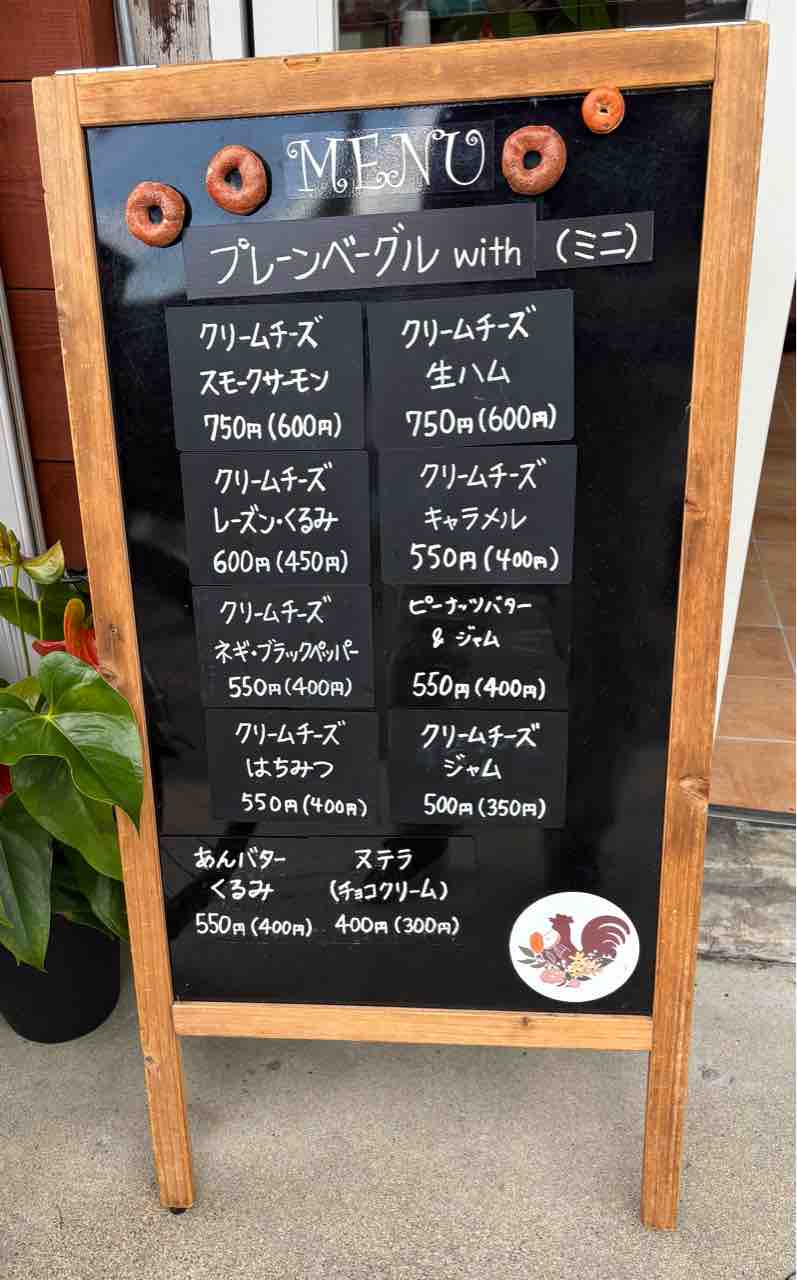 MENU
プレーンベーグル with (ミニ)
クリームチーズ
スモークサーモン
750円(600円)
クリームチーズ
生ハム
750円(600円)
クリームチーズ
レーズン・くるみ
600円(450円)
クリームチーズ
キャラメル
550円(400円)
クリームチーズ
ネギ・ブラックペッパー
550円(400円)
ピーナッツバター
& ジャム
550円(400円)
クリームチーズ
はちみつ
550円(400円)
クリームチーズ
ジャム
500円(350円)
あんバター
くるみ
550円(400円)
ヌテラ
(チョコクリーム)
400円(300円)